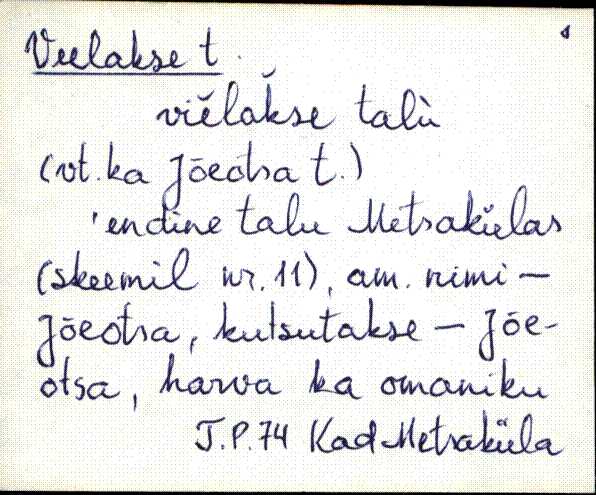 Veelakse t.
viĕlaǩse talù
(vt. ka Jõeotsa t.)
'endine talu Metsakülas
(skeemil nr. 11), am. nimi —
Jõeotsa, kutsutakse — Jõe-
otsa, harva ka omaniku
J.P. 74 Kad Metsaküla